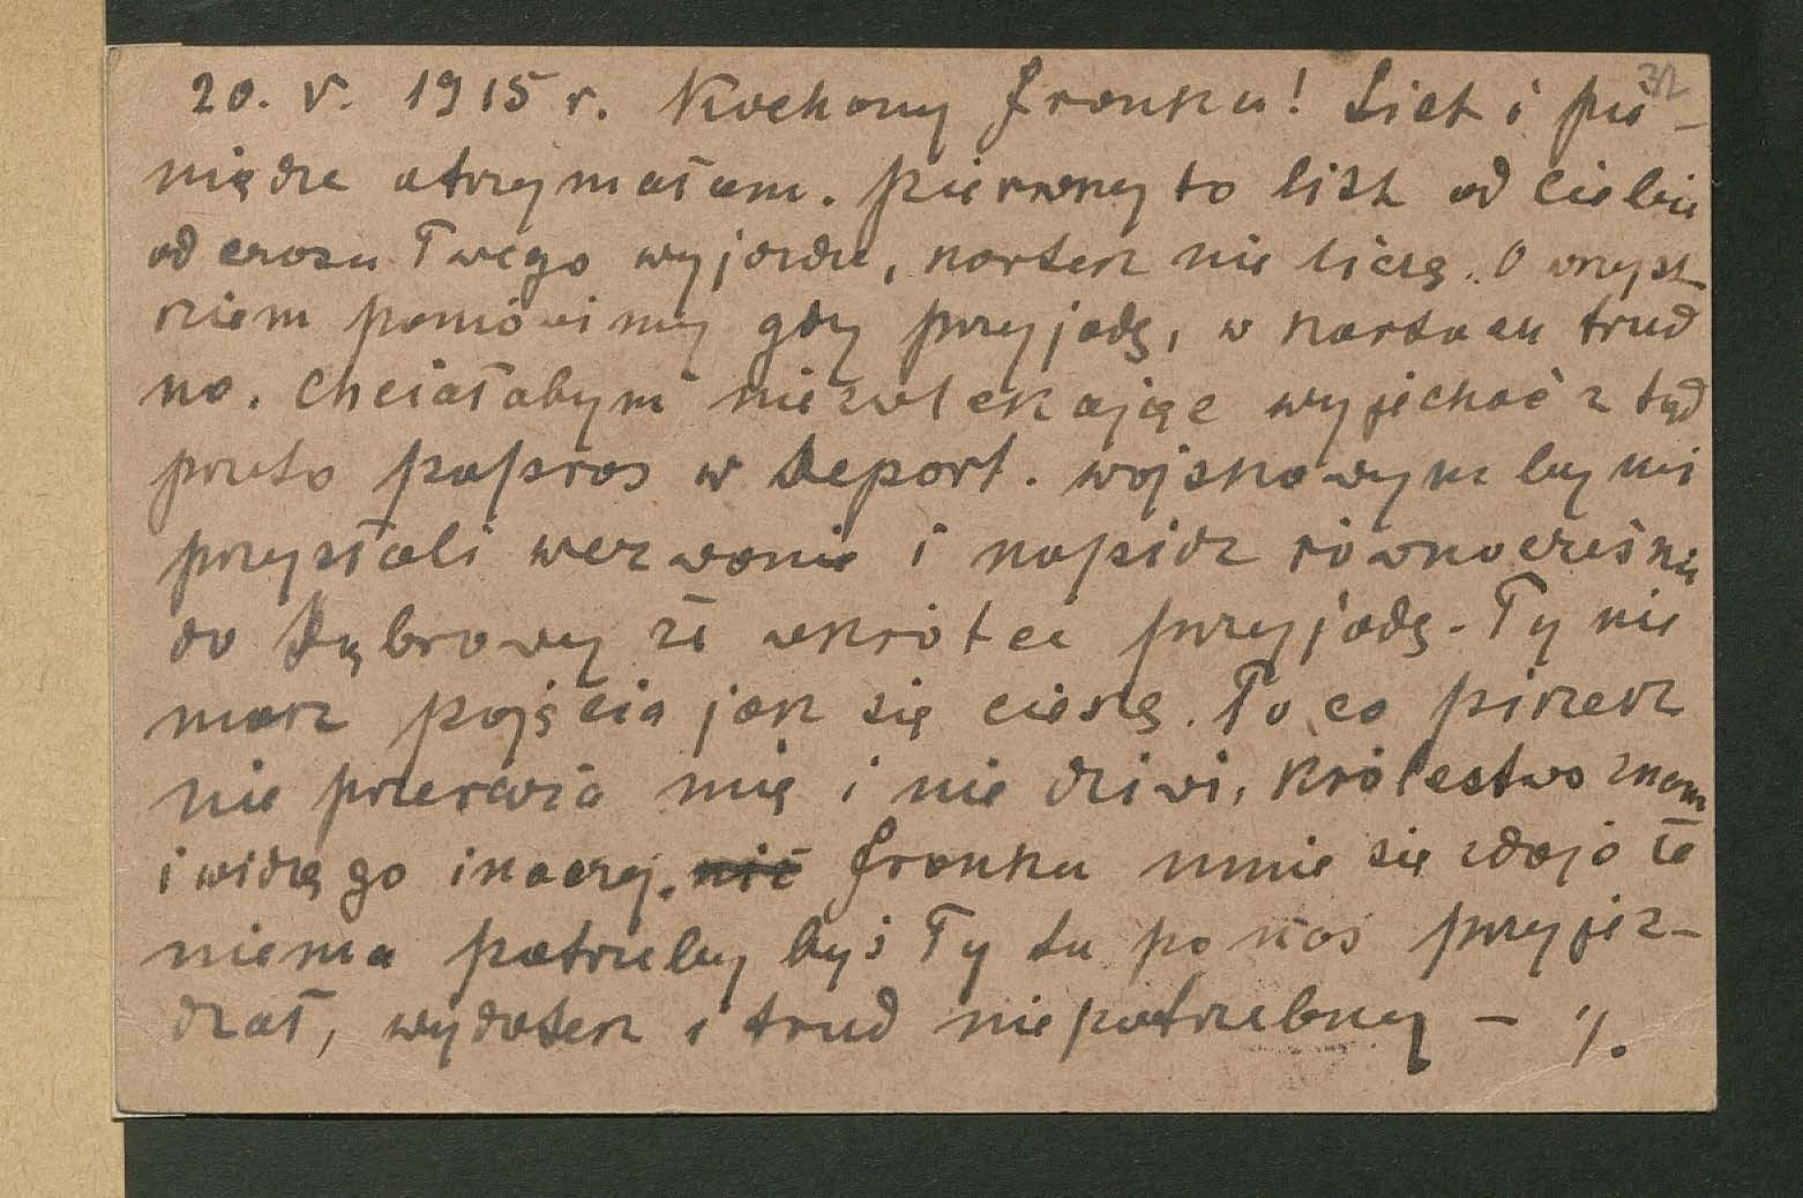 20. V. 1915 r. Kochany Franku! List i pie- 32
niądze otrzymałam. Pierwszy to list od Ciebie
od czasu Twego wyjazdu, kartek nie liczę. O wszyst
kiem pomówimy gdy przyjadę, w kartach trud
no. Chciałabym niezwlekając wyjechać z tąd
przeto popros w Depart. wojskowym by mi
przysłali wezwanie i napisz równocześnie
do Dąbrowy że wkrótce przyjadę. Ty nie
masz pojęcia jak się cieszę. To co piszesz
nie przeraża mię i nie dziwi, Królestwo znam
i widzę go inaczej. nie Franku mnie się zdaje że
niema potrzeby byś Ty tu po kogoś przyjeż-
dżał, wydatek i trud niepotrzebny – ·/.